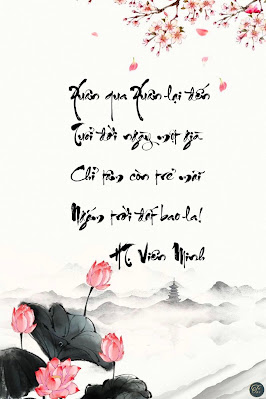 Xuân qua Xuân lại đến
Tuổi đời ngày một già
Chỉ tâm còn trẻ mãi
Ngắm trời đất bao la!
HT. Viên Minh